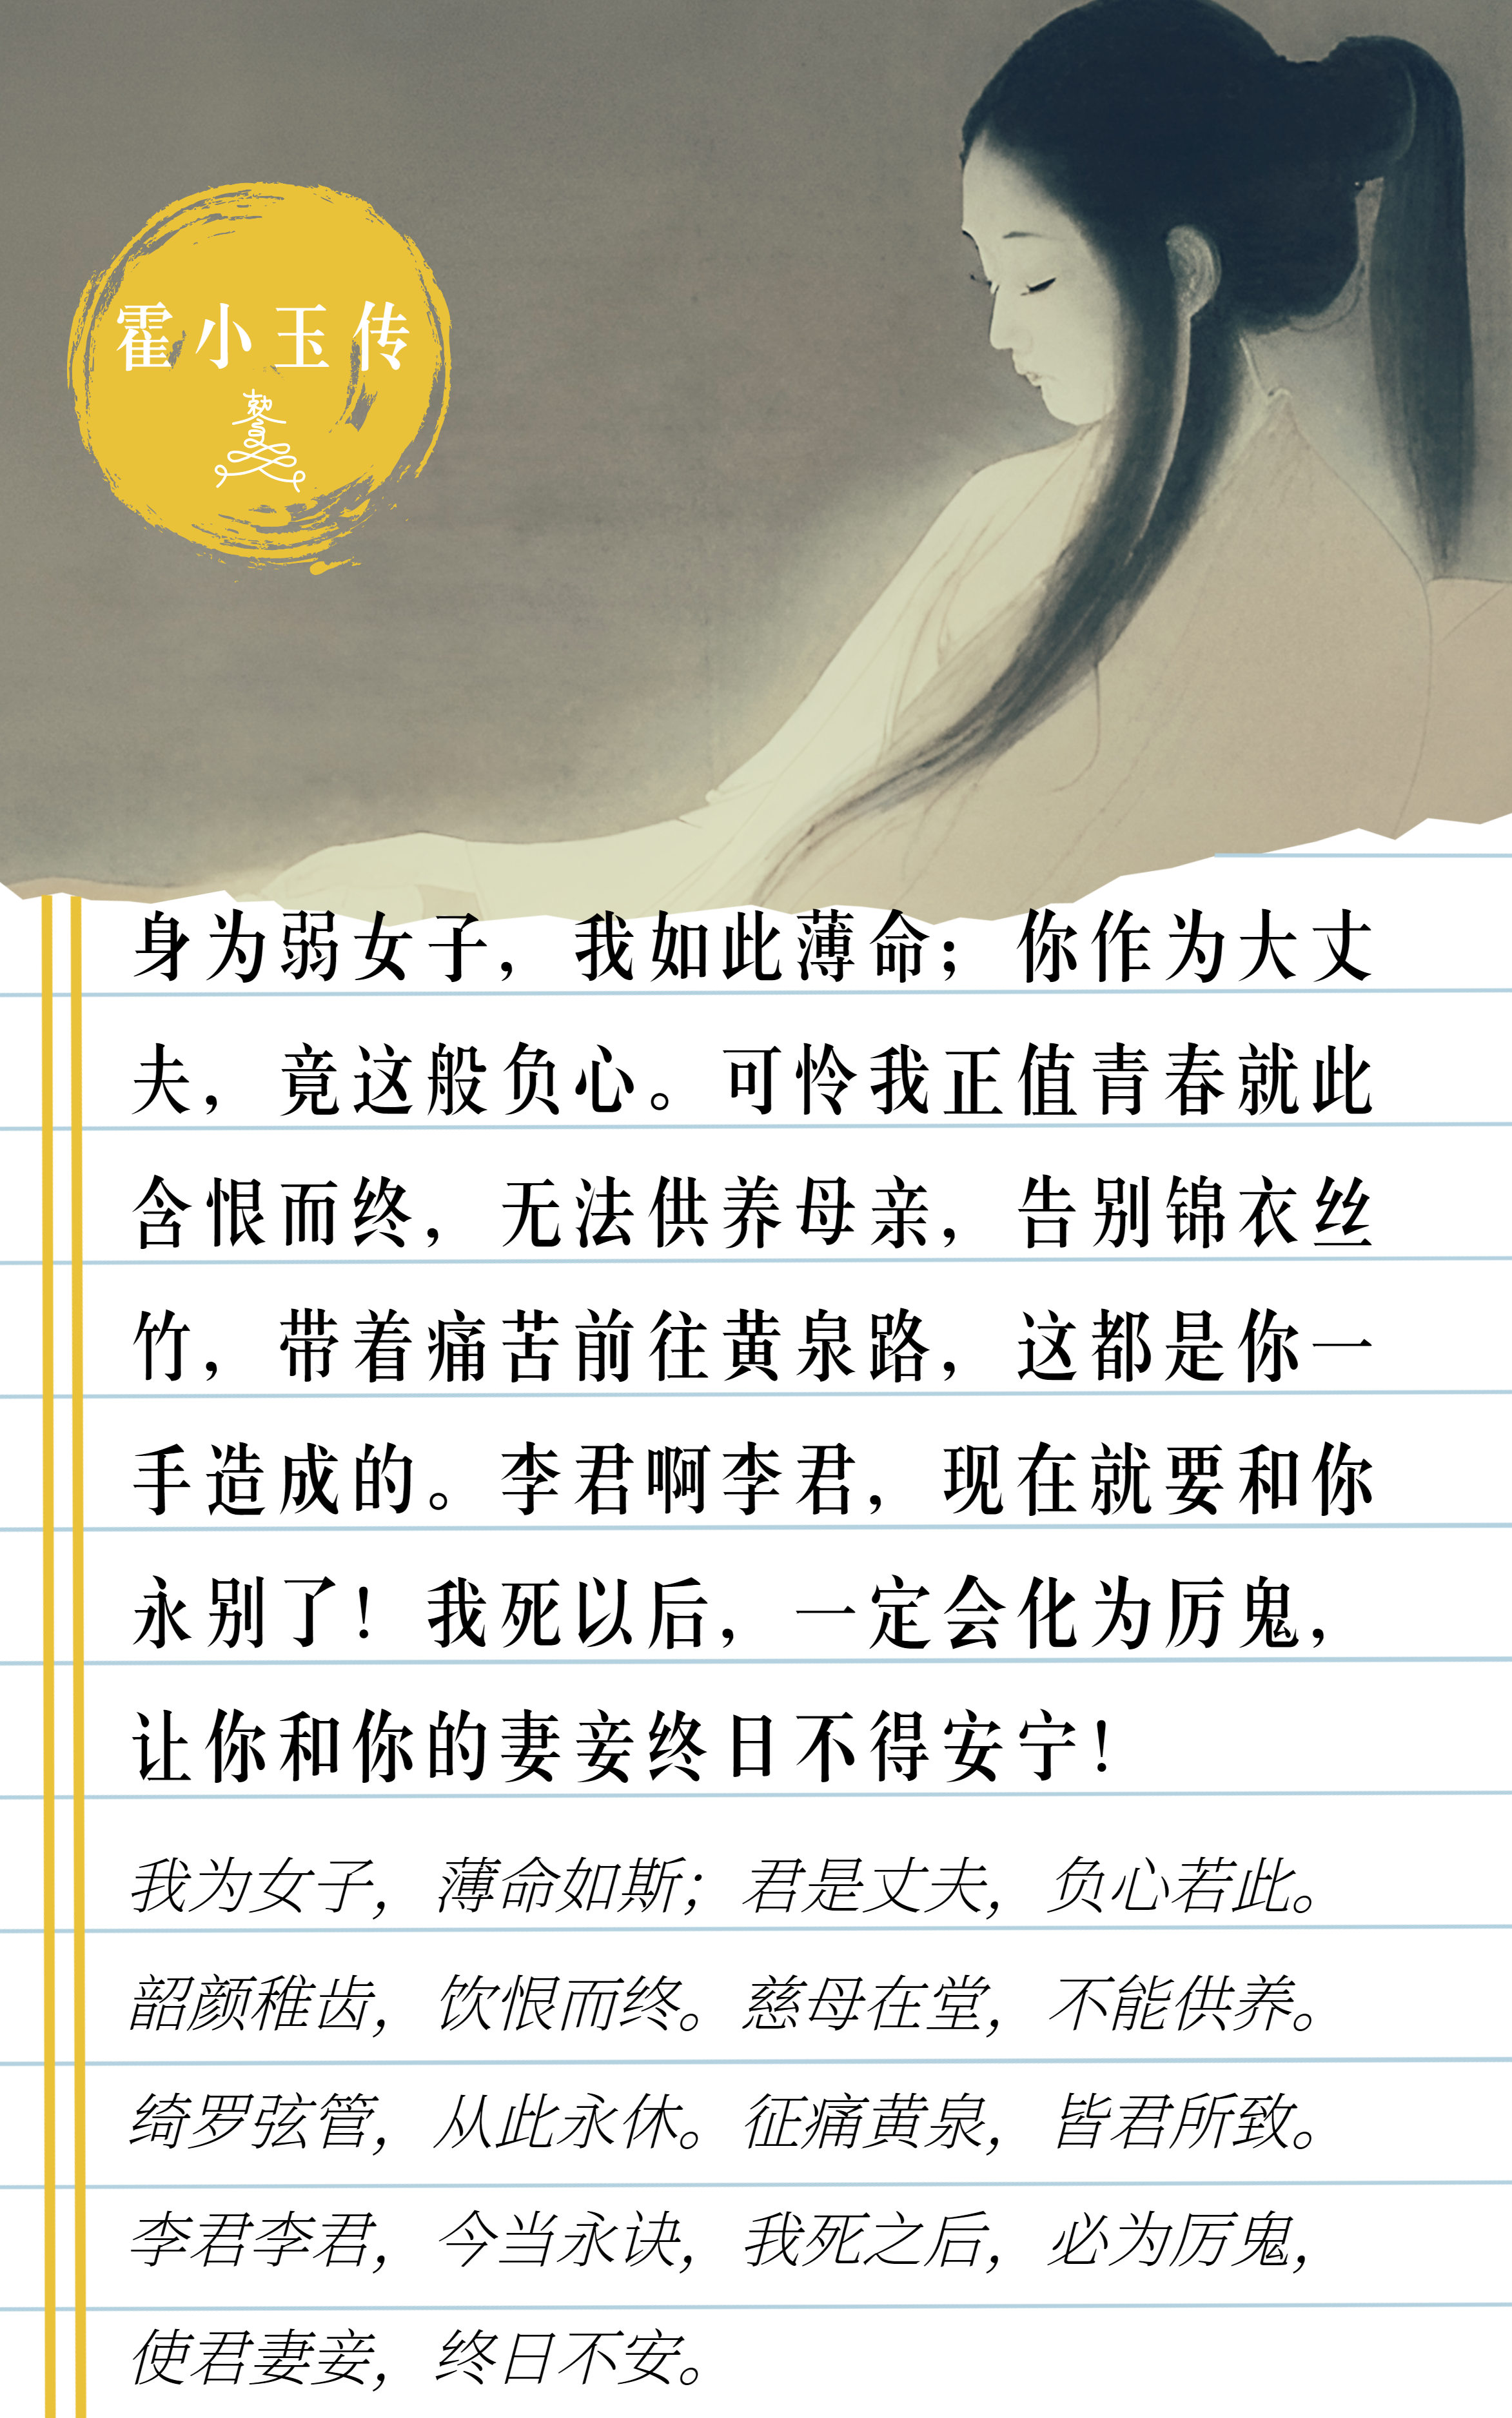 霍小玉传
身为弱女子，我如此薄命；你作为大丈
夫，竟这般负心。可怜我正值青春就此
含恨而终，无法供养母亲，告别锦衣丝
竹，带着痛苦前往黄泉路，这都是你一
手造成的。李君啊李君，现在就要和你
永别了！我死以后，一定会化为厉鬼，
让你和你的妻妾终日不得安宁！
我为女子，薄命如斯；君是丈夫，负心若此。
韶颜稚齿，饮恨而终。慈母在堂，不能供养。
绮罗弦管，从此永休。征痛黄泉，皆君所致。
李君李君，今当永诀，我死之后，必为厉鬼，
使君妻妾，终日不安。